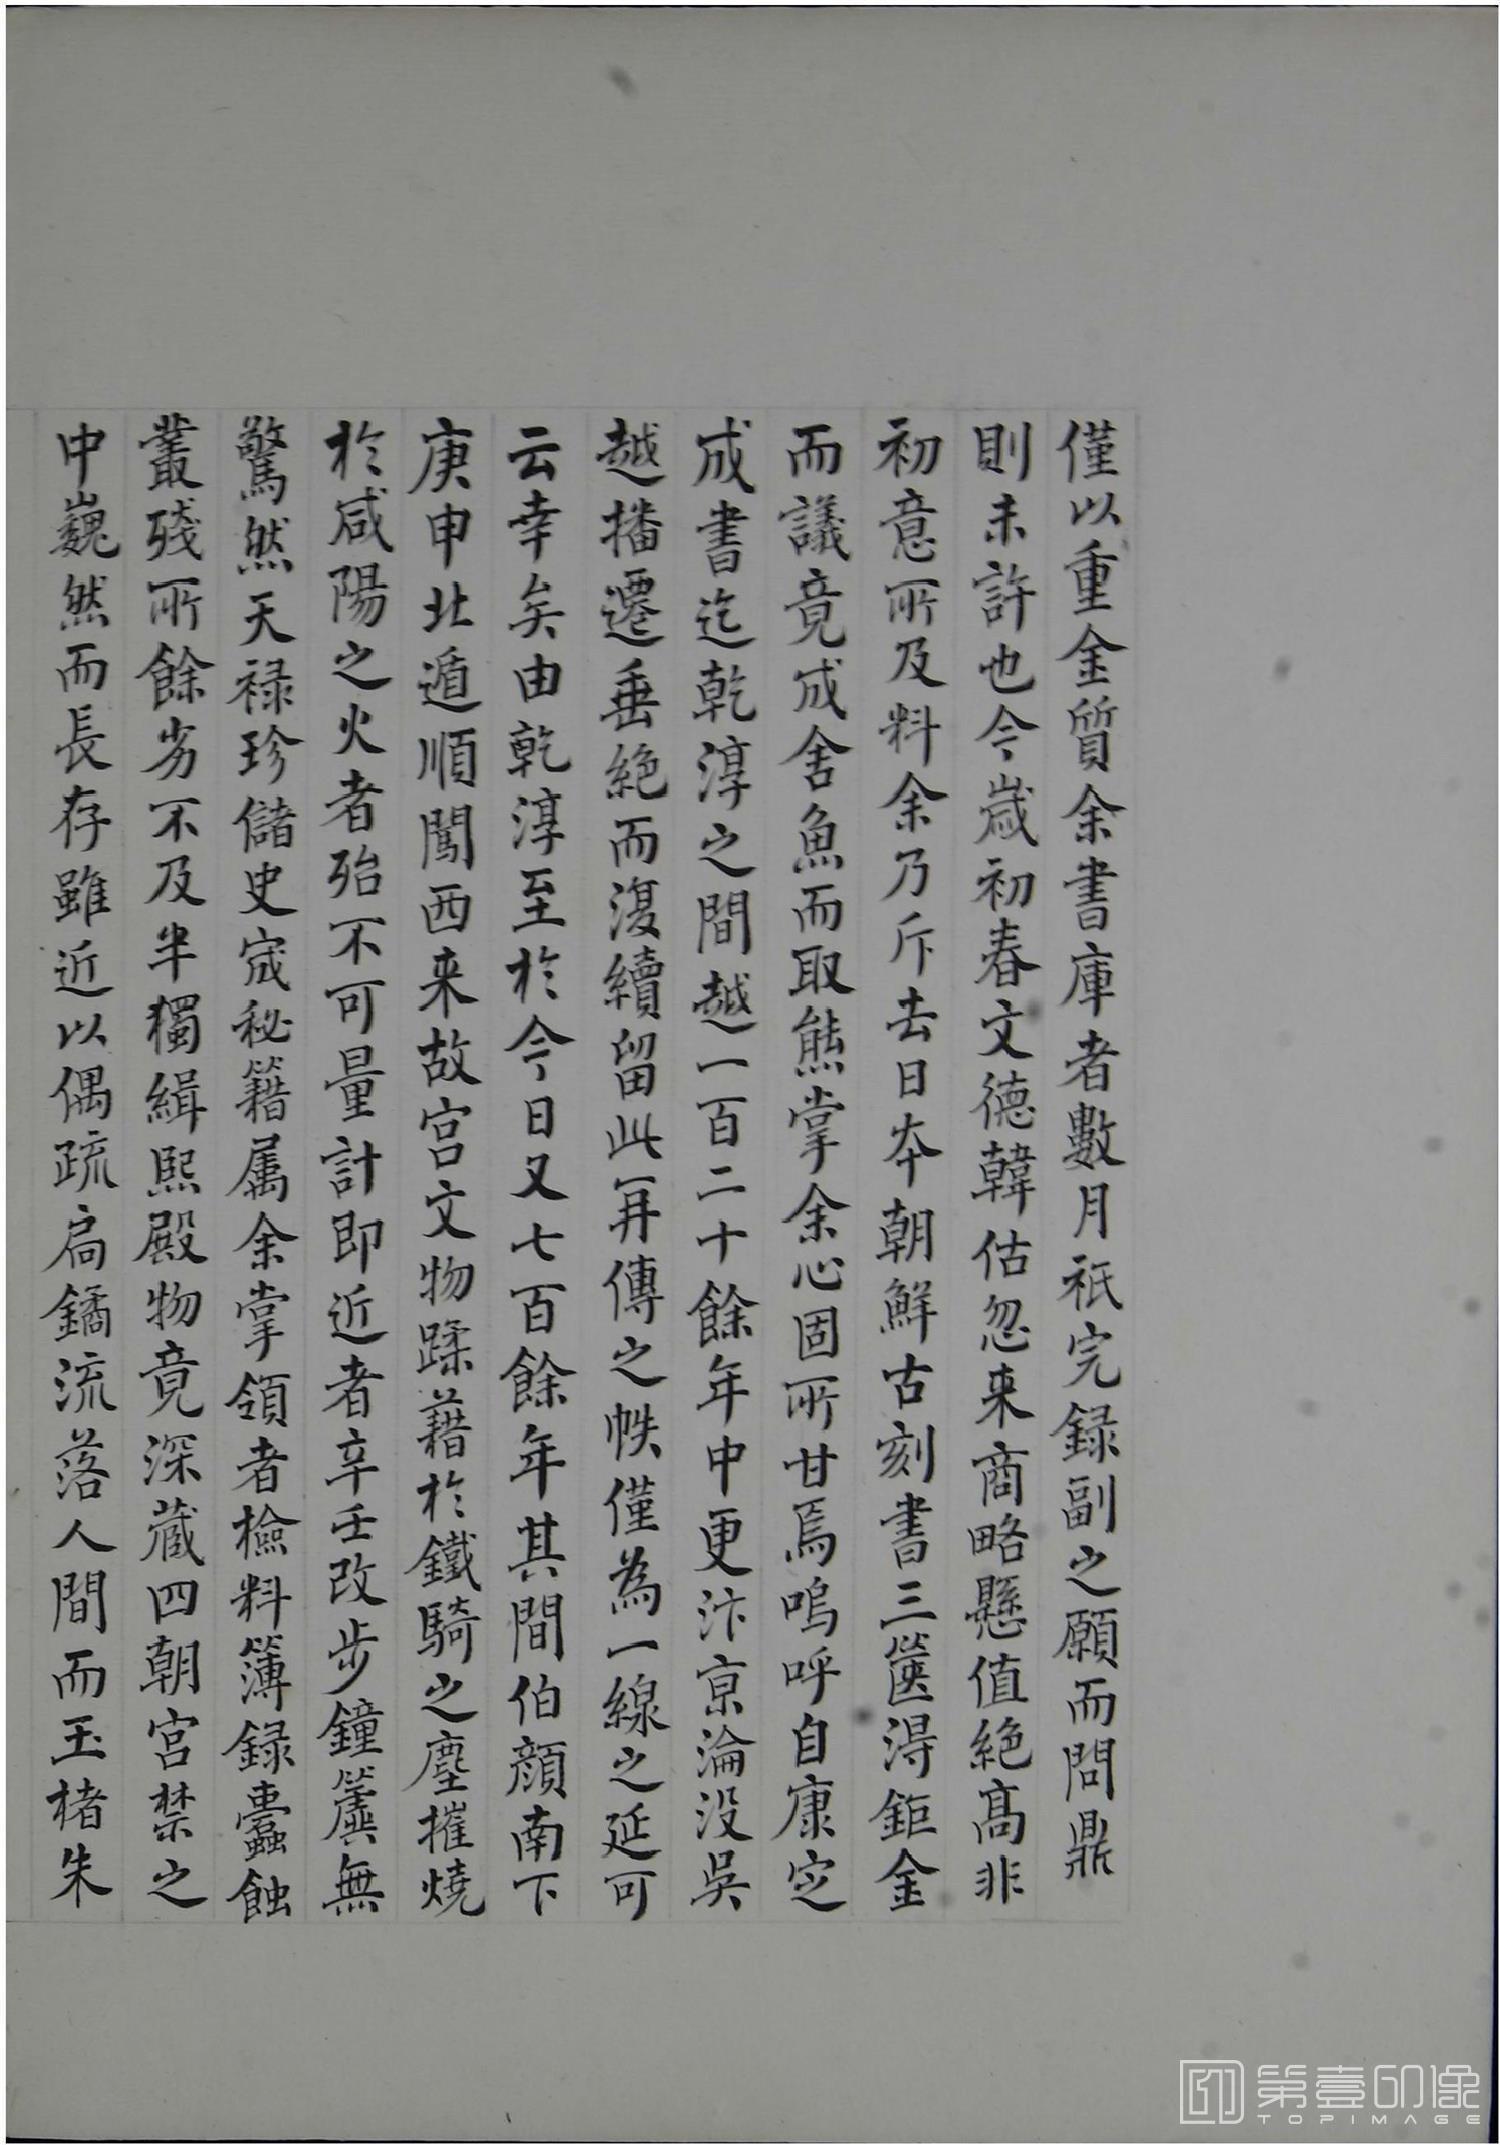 僅以重金質余書庫者數月祇完録副之願而問鼎
則未許也今歳初春文德韓估忽来商略懸值絶高非
初意所及料余乃斥去日本朝鮮古刻書三篋淂鉅金
而議竟成舍魚而取熊掌余心固所甘焉嗚呼自康定
成書迄乾淳之間越一百二十餘年中更汴京淪没吳
越播遷垂絶而復續留此再傳之帙僅為一線之延可
云幸矣由乾淳至於今日又七百餘年其間伯顔南下
庚申北遁順闖西来故宫文物蹂藉於鐵騎之塵摧燒
於咸陽之火者殆不可量計即近者辛壬改步鐘簴無
驚然天禄珍儲史宬秘籍属余掌領者檢料簿録蠹蝕
叢殘所餘劣不及半獨緝熙殿物竟深蔵四朝宫禁之
中巍然而長存雖近以偶疏扃鐍流落人間而玉楮朱
第壹印像
TOPIMAGE